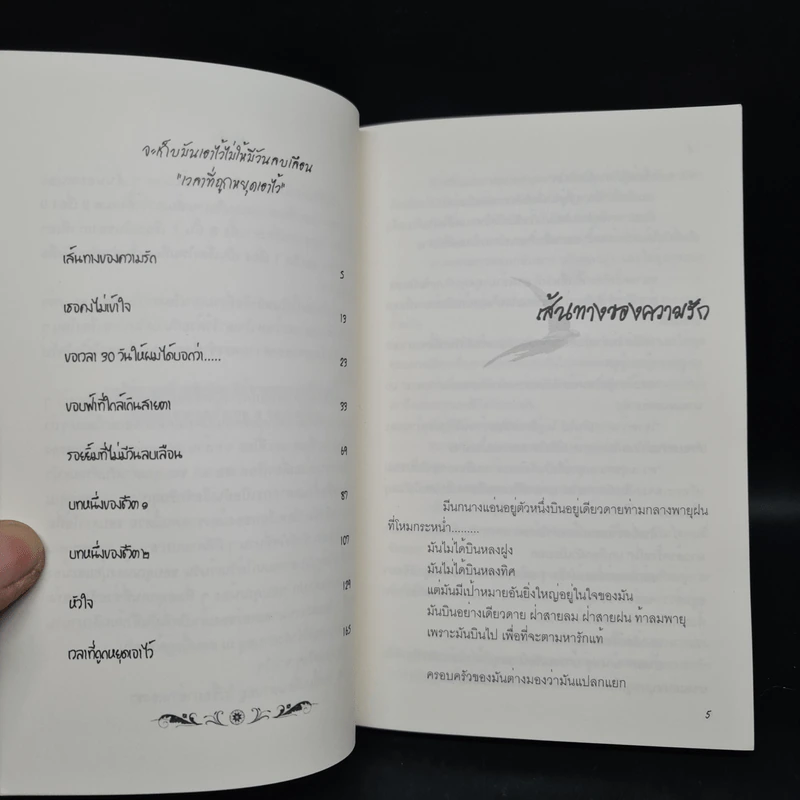 จะเก็บมันเอาไว้ไม่ให้มีวันลบเลือน
"เวลาที่ถูกหยุดเอาไว้"
เส้นทางของความรัก 5
เธอคงไม่เข้าใจ 13
ขอเวลา 30 วันให้ผมได้บอกว่า..... 23
ขอบฟ้าที่ใกล้เกินสายตา 33
รอยยิ้มที่ไม่มีวันลบเลือน 69
บทหนึ่งของชีวิต ๑ 87
บทหนึ่งของชีวิต ๒ 107
หัวใจ 129
เวลาที่ถูกหยุดเอาไว้ 165
เส้นทางของความรัก
มีนกนางแอ่นอยู่ตัวหนึ่งบินอยู่เดียวดายท่ามกลางพายุฝน
ที่โหมกระหน่ำ.........
มันไม่ได้บินหลงฝูง
มันไม่ได้บินหลงทิศ
แต่มันมีเป้าหมายอันยิ่งใหญ่อยู่ในใจของมัน
มันบินอย่างเดียวดาย ฝ่าสายลม ฝ่าสายฝน ท้าลมพายุ
เพราะมันบินไป เพื่อที่จะตามหารักแท้
ครอบครัวของมันต่างมองว่ามันแปลกแยก
5